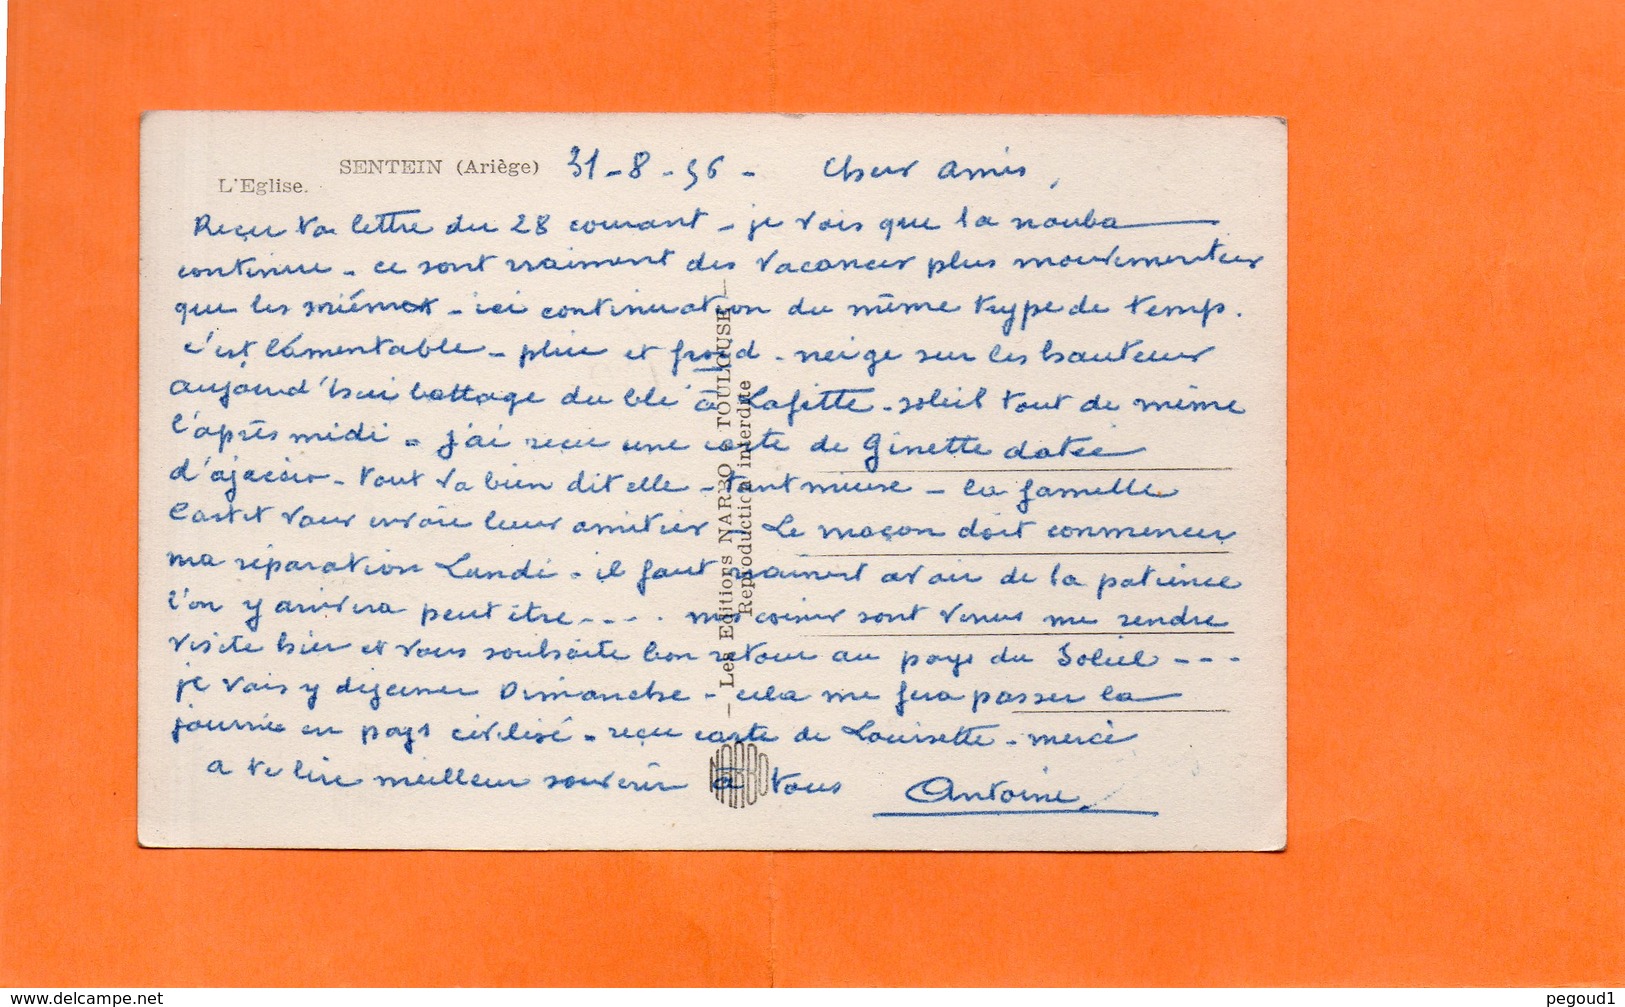 SENTEIN (Ariège)
L'Eglise.
31-8-56 - Cher amis,
Reçu ta lettre du 28 courant - je vois que la nouba
continue - ce sont vraiment des vacances plus mouvementeés
que les miennes - ici continuation du même type de temps.
c'est lamentable - pluie et froid - neige sur les hauteurs
aujourd'hui battage du blé à Lafitte - soleil tout de même
l'après midi - j'ai reçu une carte de Ginette datée
d'ajaccio - tout va bien dit elle - tant mieux - la famille
vous envoie leurs amitiés Le maçon doit commencer
ma réparation Lundi - il faut vraiment avoir de la patience
l'on y arrivera peut être - - - . mes cousins sont venus me rendre
visite hier et vous souhaite bon retour au pays du Soleil - - -
je vais y dejeuner Dimanche - cela me fera passer la
journée en pays civilisé - reçu carte de Louisette - merci
a te lire meilleur souvenir à tous Antoine
— Les Editions NARBO — TOULOUSE —
Reproduction interdite
NARBO
www.delcampe.net
pegoud1